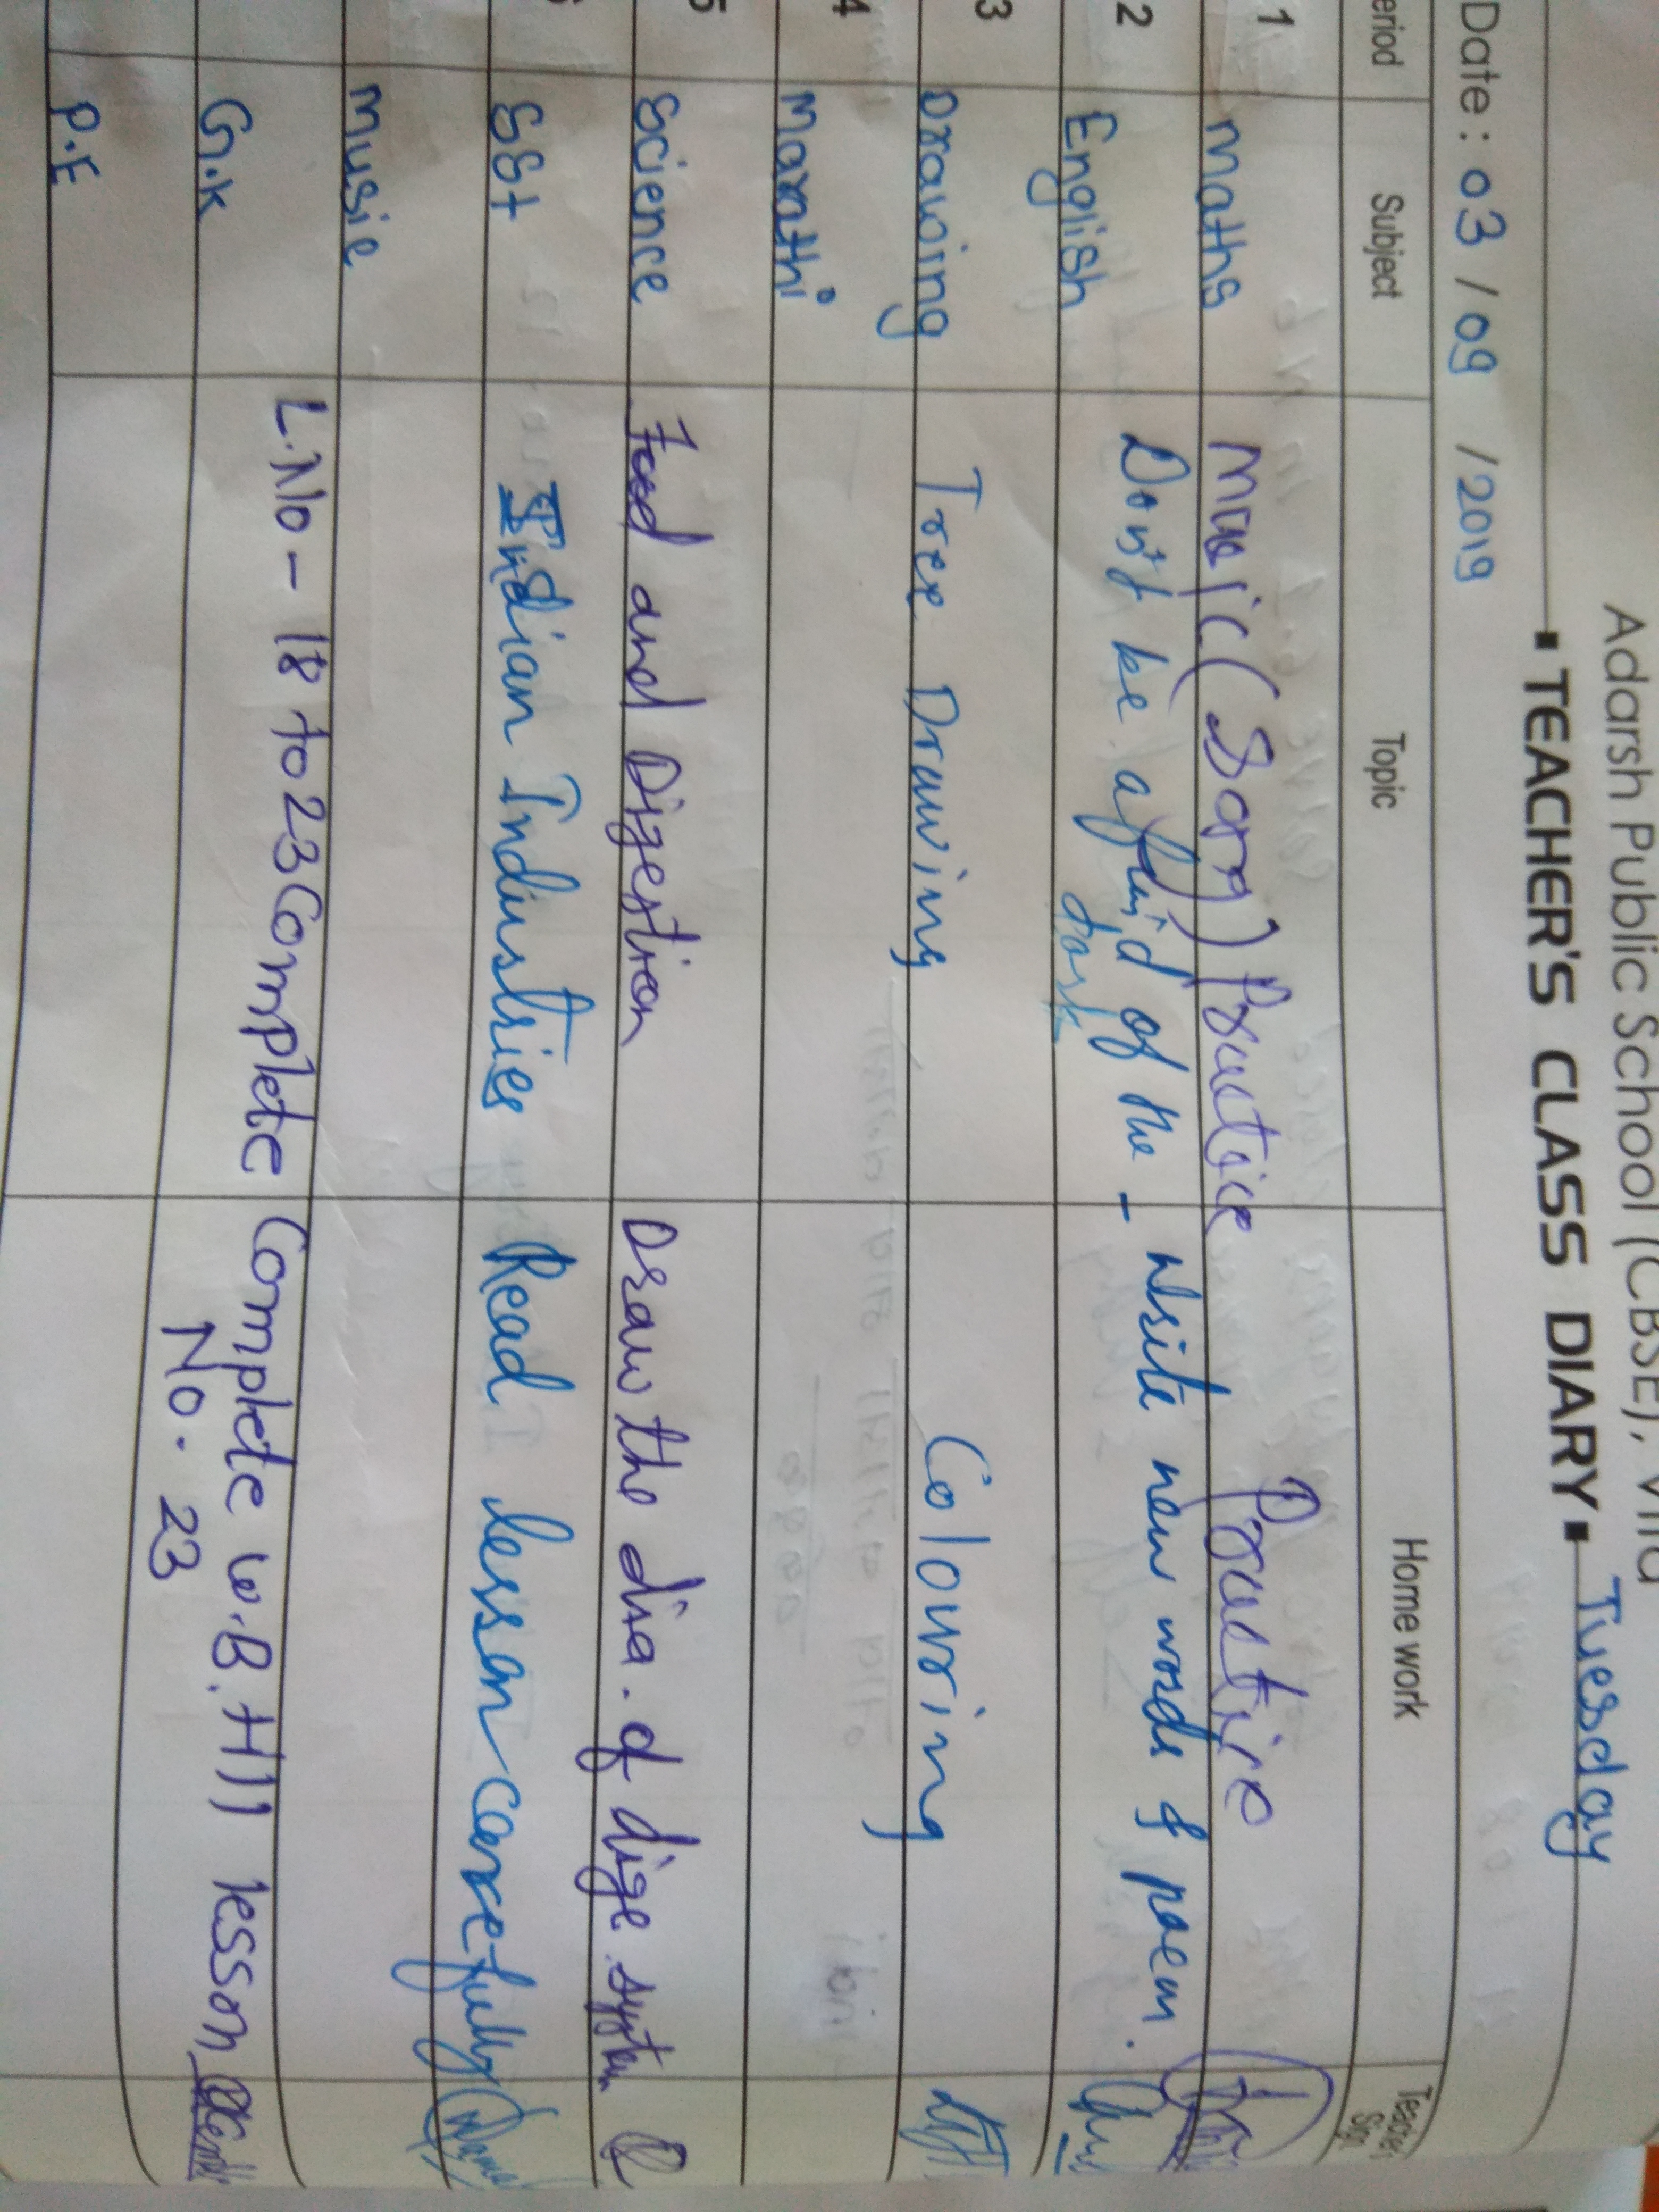 Adarsh Public School (CBSE), Vita
▪ TEACHER'S CLASS DIARY ▪ Tuesday
Date : 03 / 09 / 2019
eriod Subject Topic Home work Teacher Sign
1 maths Music (Song) Practice Practice
2 English Don't be afraid of the - write new words of poem.
dark
3 Drawing Tree Drawing Colouring
4 Marathi
5 Science Food and Digestion Draw the dia. of dige. system
6 SSt Indian Industries Read lesson carefully
Music
G.K L.No - 18 to 23 Complete Complete w.B. till lesson
No. 23
P.E